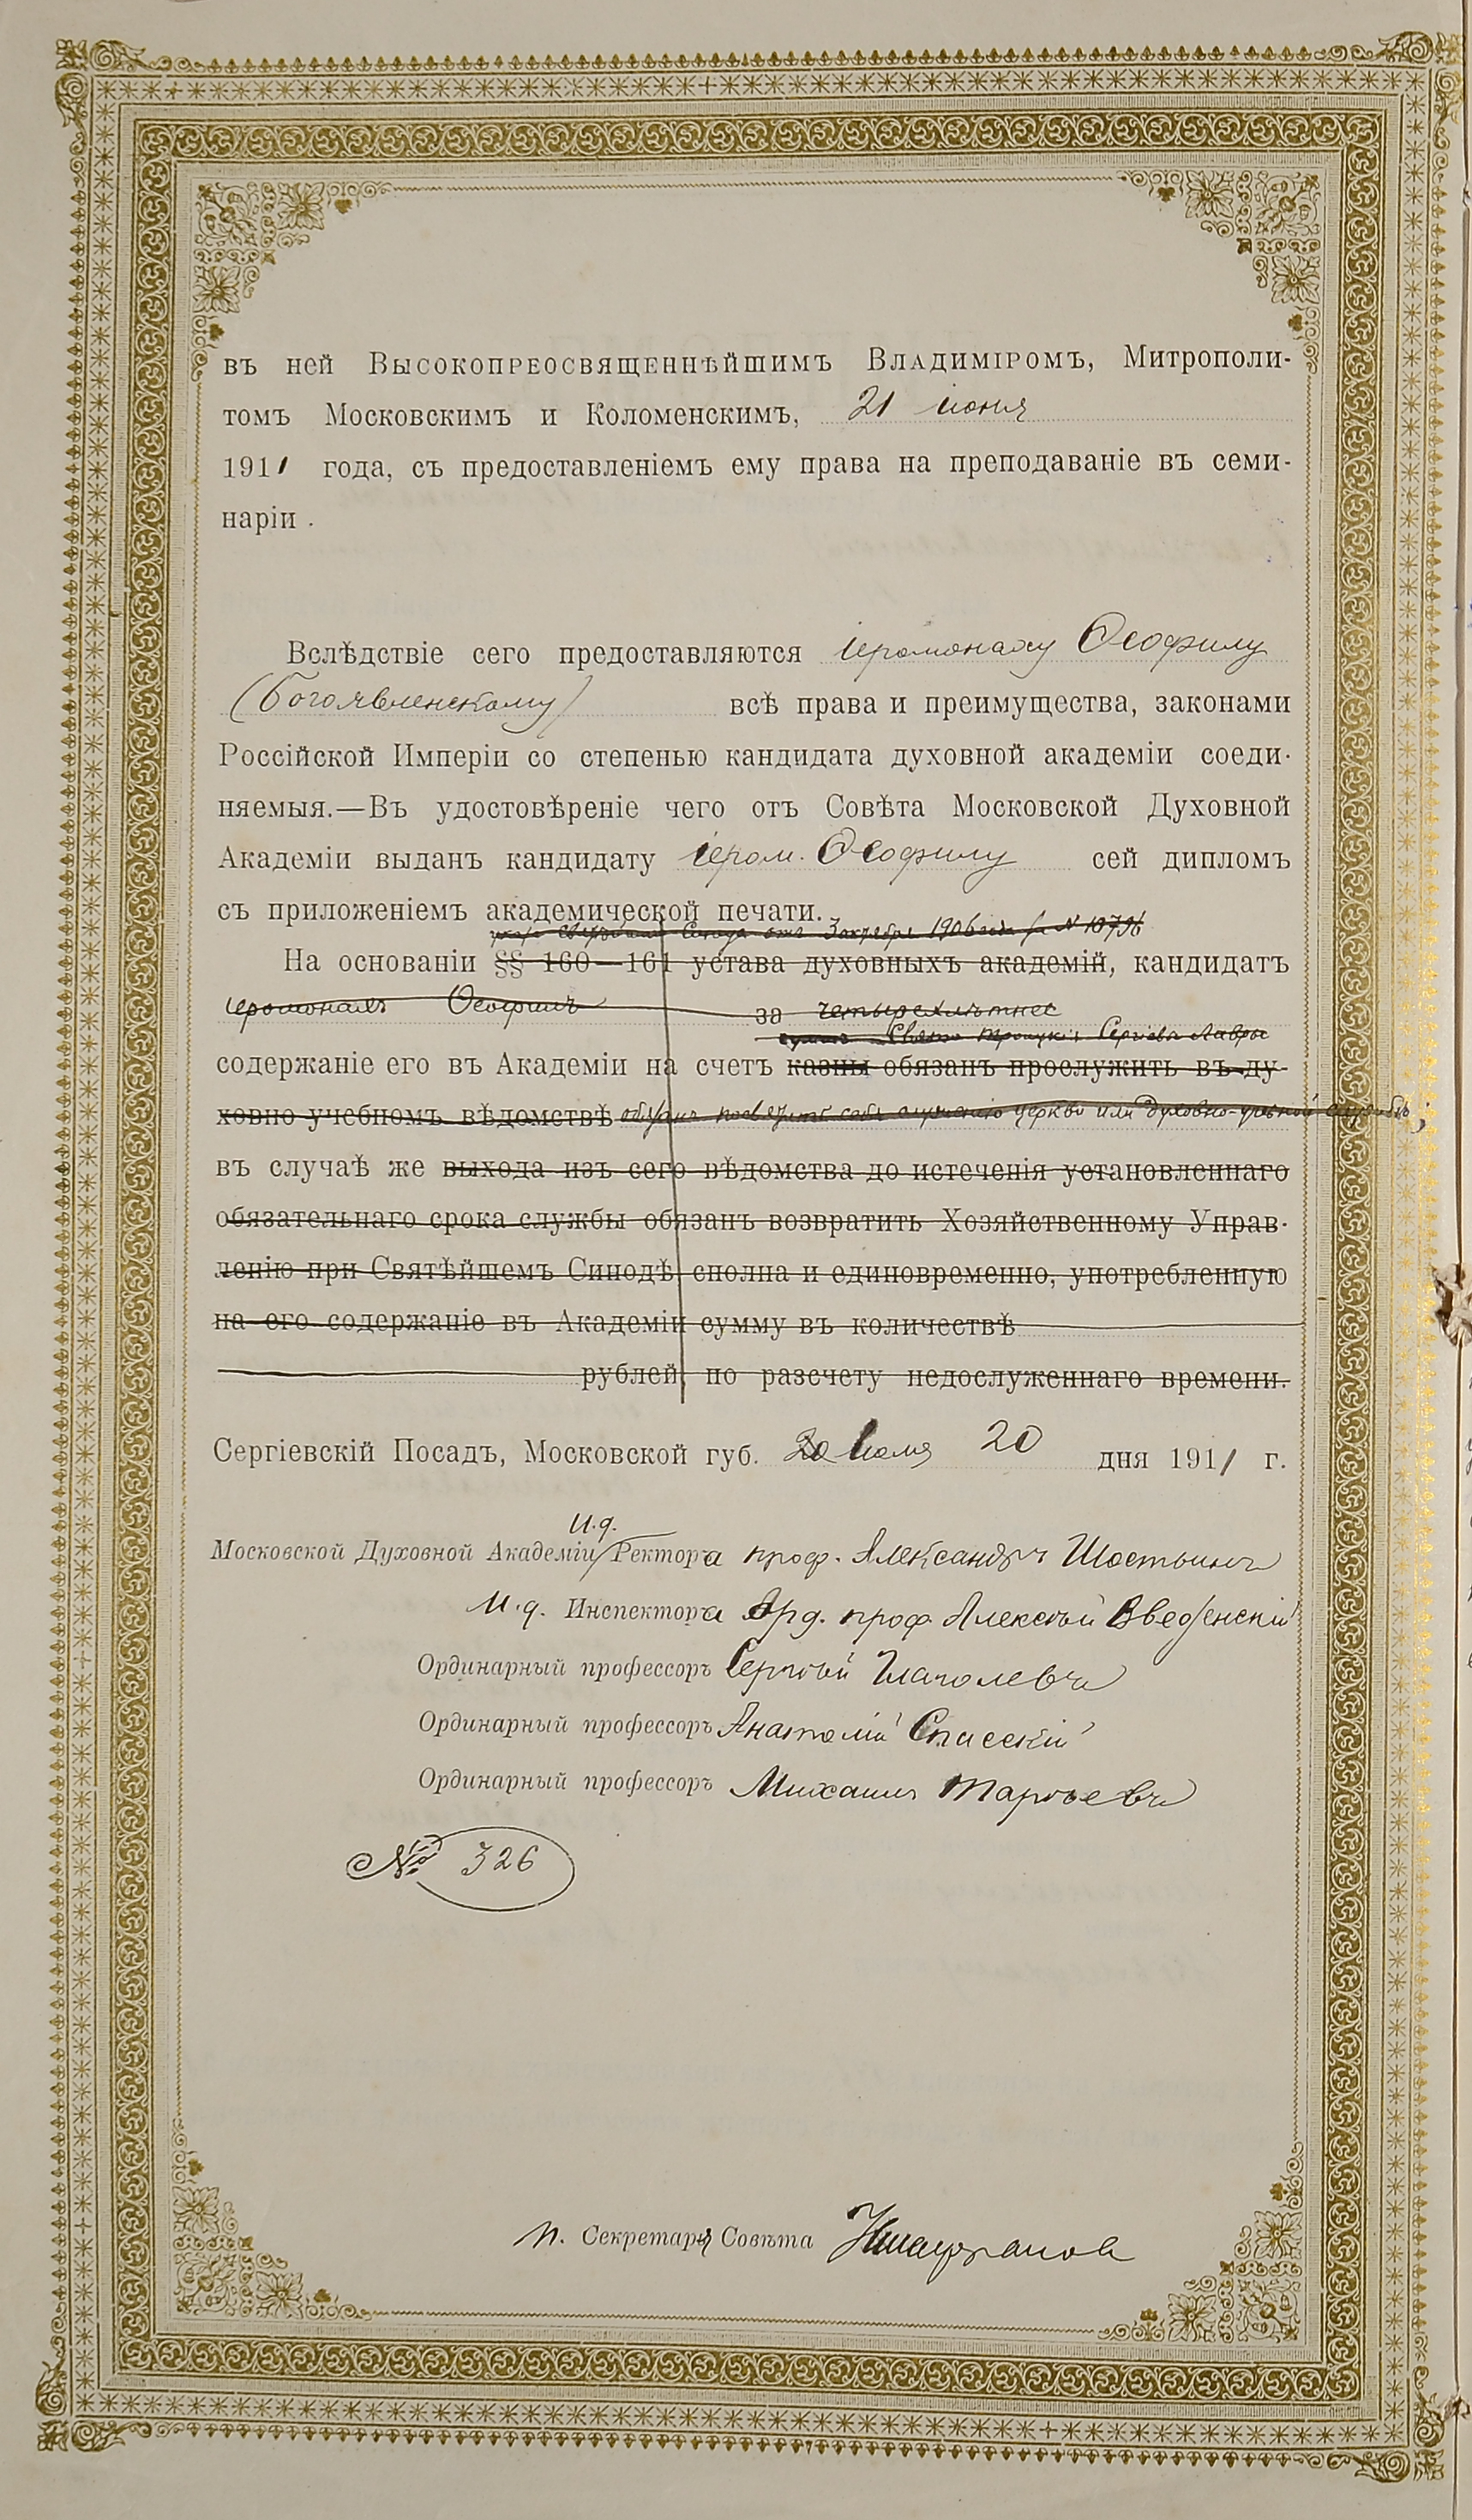 въ ней Высокопреосвященнѣйшимъ Владиміромъ, Митрополи-
томъ Московскимъ и Коломенскимъ, 21 іюня
1911 года, съ предоставленіемъ ему права на преподаваніе въ семи-
наріи.
Вслѣдствіе сего предоставляются іеромонаху Ѳеофилу
(Богоявленскому) всѣ права и преимущества, законами
Россійской Имперіи со степенью кандидата духовной академіи соеди-
няемыя.—Въ удостовѣреніе чего отъ Совѣта Московской Духовной
Академіи выданъ кандидату іером. Ѳеофилу сей дипломъ
съ приложеніемъ академической печати.
Синода отъ 3 октября 1906 года за № 10796
На основаніи §§ 160—161 устава духовныхъ академій, кандидатъ
іеромонахъ Ѳеофилъ за четырехлѣтнее
суммъ Свято Троицкія Сергіевы Лавры
содержаніе его въ Академіи на счетъ казны обязанъ прослужить въ ду-
ховно-учебномъ вѣдомствѣ обязанъ посвятить себя служенію церкви или духовно-учебной службѣ,
въ случаѣ же выхода изъ сего вѣдомства до истеченія установленнаго
обязательнаго срока службы обязанъ возвратить Хозяйственному Управ-
ленію при Святѣйшемъ Синодѣ сполна и единовременно, употребленную
на его содержаніе въ Академіи сумму въ количествѣ
рублей, по разсчету недослуженнаго времени.
Сергіевскій Посадъ, Московской губ. Іюля 20 дня 1911 г.
И.д.
Московской Духовной Академіи Ректора проф. Александръ Шостьинъ
И.д. Инспектора Орд. проф. Алексѣй Введенскій
Ординарный профессоръ Сергѣй Глаголевъ
Ординарный профессоръ Анатолій Спасскій
Ординарный профессоръ Михаилъ Тарѣевъ
№ 326
И. Секретаря Совѣта